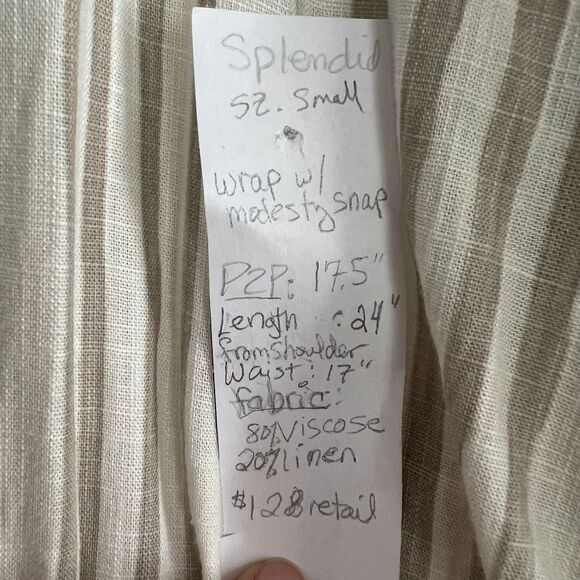 Splendid
sz. small
wrap w/
modesty snap
P2P: 17.5"
Length : 24"
from shoulder
Waist: 17"
fabric:
80% Viscose
20% linen
$128 retail